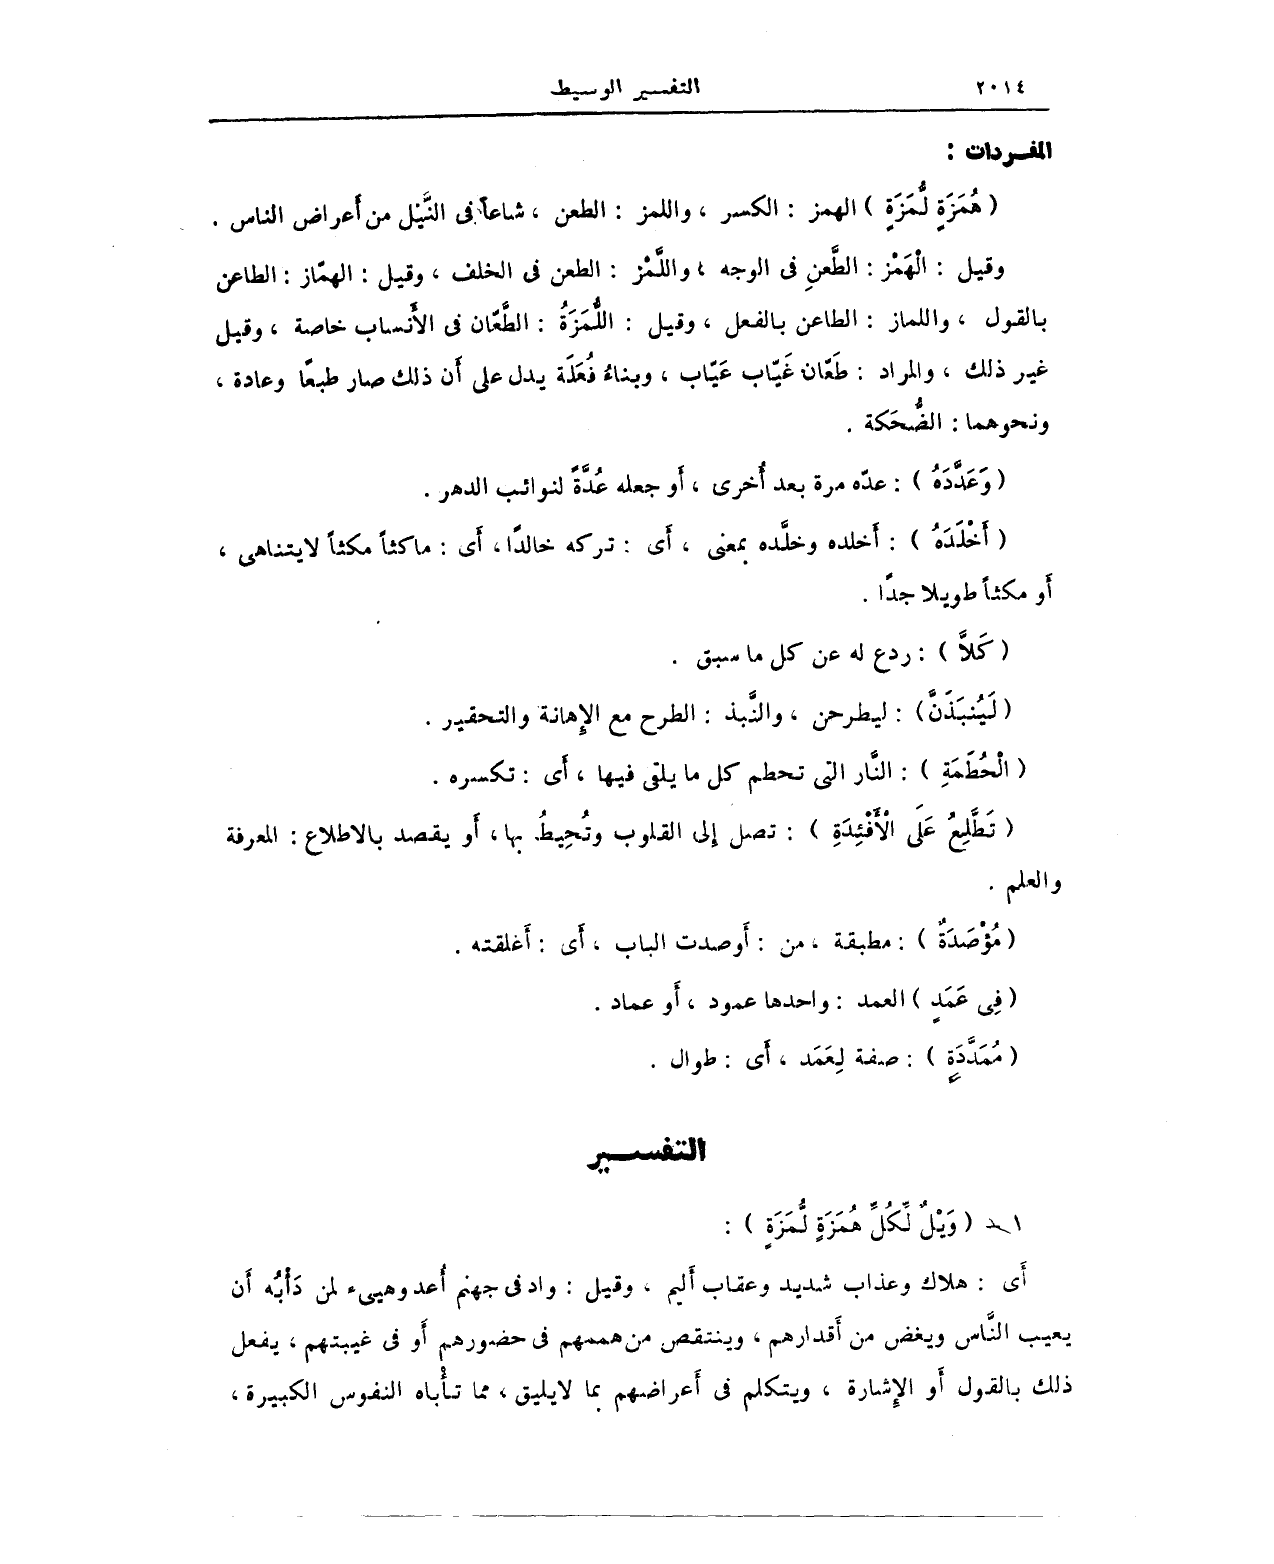 ٢٠١٤ التفسير الوسيط
المفـردات :
( هُمَزَةٍ لُّمَزَةٍ ) الهمز : الكسر ، واللمز : الطعن ، شاعاً فى النَّيْل من أعراض الناس .
وقيل : الْهَمْز : الطَّعن فى الوجه ، واللَّمْز : الطعن فى الخلف ، وقيل : الهمّاز : الطاعن
بالقول ، واللماز : الطاعن بالفعل ، وقيل : اللُّمَزَةُ : الطَّعّان فى الأَنساب خاصة ، وقيل
غير ذلك ، والمراد : طَعّان غَيّاب عَيّاب ، وبناءُ فُعَلَة يدل على أن ذلك صار طبعًا وعادة ،
ونحوهما : الضُّحَكة .
( وَعَدَّدَهُ ) : عدّه مرة بعد أُخرى ، أَو جعله عُدَّةً لنوائب الدهر .
( أَخْلَدَهُ ) : أَخلده وخلَّده بمعنى ، أَى : تركه خالدًا ، أَى : ماكثاً مكثاً لايتناهى ،
أَو مكثاً طويلا جدًا .
( كَلاَّ ) : ردع له عن كل ما سبق .
( لَيُنبَذَنَّ ) : ليطرحن ، والنَّبذ : الطرح مع الإِهانة والتحقير .
( الْحُطَمَةِ ) : النَّار التى تحطم كل ما يلقى فيها ، أَى : تكسره .
( تَطَّلِعُ عَلَى الْأَفْئِدَةِ ) : تصل إِلى القلوب وتُحِيطُ بها ، أَو يقصد بالاطلاع : المعرفة
والعلم .
( مُؤْصَدَةٌ ) : مطبقة ، من : أَوصدت الباب ، أَى : أَغلقته .
( فِى عَمَدٍ ) العمد : واحدها عمود ، أَو عماد .
( مُمَدَّدَةٍ ) : صفة لِعَمَد ، أَى : طوال .
التفســـير
١ - ( وَيْلٌ لِّكُلِّ هُمَزَةٍ لُّمَزَةٍ ) :
أَى : هلاك وعذاب شديد وعقاب أَليم ، وقيل : واد فى جهنم أُعد وهيىء لمن دَأْبُه أَن
يعيب النَّاس ويغض من أَقدارهم ، وينتقص من هممهم فى حضورهم أَو فى غيبتهم ، يفعل
ذلك بالقول أَو الإِشارة ، ويتكلم فى أَعراضهم بما لايليق ، مما تأْباه النفوس الكبيرة ،